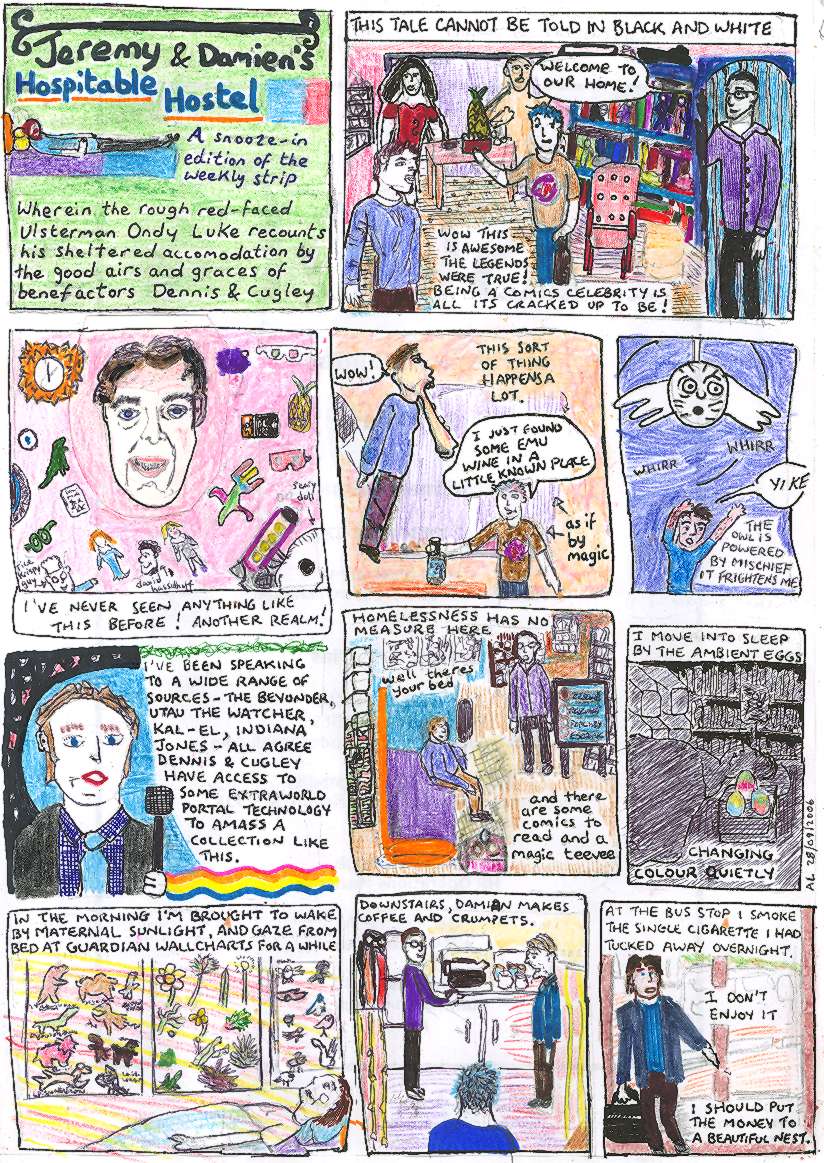 Jeremy & Damien's
Hospitable
Hostel
A snooze-in
edition of the
weekly strip
Wherein the rough red-faced
Ulsterman Ondy Luke recounts
his sheltered accomodation by
the good airs and graces of
benefactors Dennis & Cugley
THIS TALE CANNOT BE TOLD IN BLACK AND WHITE
WELCOME TO
OUR HOME!
WOW THIS
IS AWESOME
THE LEGENDS
WERE TRUE!
BEING A COMICS CELEBRITY IS
ALL ITS CRACKED UP TO BE!
scary
doll
rice
krispy
guy
david
hasselhoff
I'VE NEVER SEEN ANYTHING LIKE
THIS BEFORE! ANOTHER REALM!
WOW!
THIS SORT
OF THING
HAPPENS A
LOT.
I JUST FOUND
SOME EMU
WINE IN A
LITTLE KNOWN PLACE
as if
by
magic
WHIRR
WHIRR
YIKE
THE
OWL IS
POWERED
BY MISCHIEF
IT FRIGHTENS ME
I'VE BEEN SPEAKING
TO A WIDE RANGE OF
SOURCES - THE BEYONDER,
UTAU THE WATCHER,
KAL-EL, INDIANA
JONES - ALL AGREE
DENNIS & CUGLEY
HAVE ACCESS TO
SOME EXTRAWORLD
PORTAL TECHNOLOGY
TO AMASS A
COLLECTION LIKE
THIS.
HOMELESSNESS HAS NO
MEASURE HERE
well theres
your bed
and there
are some
comics to
read and a
magic teevee
I MOVE INTO SLEEP
BY THE AMBIENT EGGS
CHANGING
COLOUR QUIETLY
AL 28/09/2006
IN THE MORNING I'M BROUGHT TO WAKE
BY MATERNAL SUNLIGHT, AND GAZE FROM
BED AT GUARDIAN WALLCHARTS FOR A WHILE
DOWNSTAIRS, DAMIEN MAKES
COFFEE AND CRUMPETS.
AT THE BUS STOP I SMOKE
THE SINGLE CIGARETTE I HAD
TUCKED AWAY OVERNIGHT.
I DON'T
ENJOY IT
I SHOULD PUT
THE MONEY TO
A BEAUTIFUL NEST.